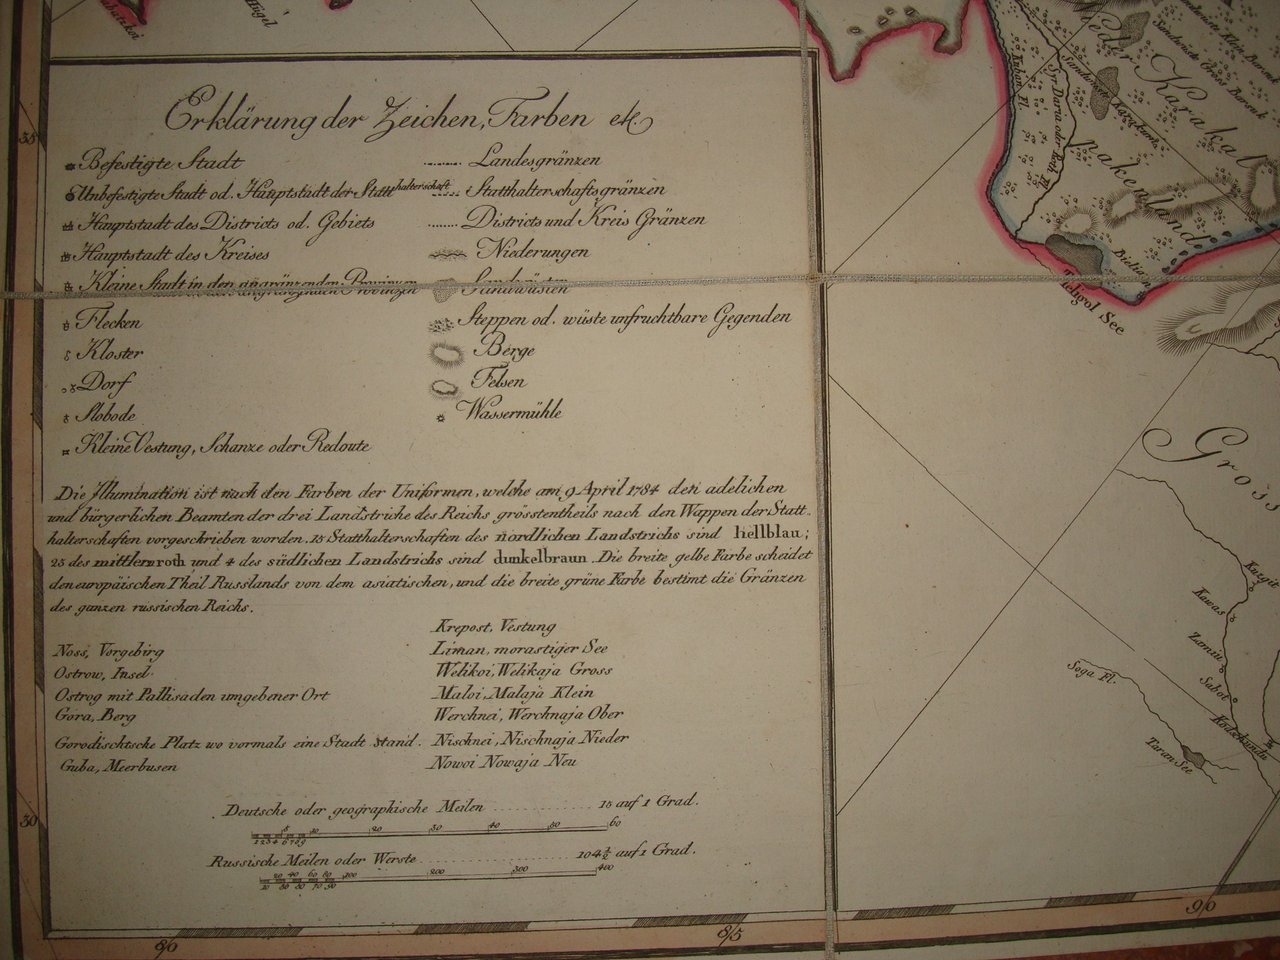 Erklärung der Zeichen, Farben etc.
Befestigte Stadt
Unbefestigte Stadt od. Hauptstadt der Statthalterschaft
Hauptstadt des Districts od. Gebiets
Hauptstadt des Kreises
Kleine Stadt in den angränzenden Provinzen
Flecken
Kloster
Dorf
Slobode
Kleine Vestung, Schanze oder Redoute
Landesgränzen
Statthalterschaftsgränzen
Districts und Kreis Gränzen
Niederungen
Sandwüsten
Steppen od. wüste unfruchtbare Gegenden
Berge
Felsen
Wassermühle
Die Illumination ist nach den Farben der Uniformen, welche am 9 April 1784 den adelichen
und bürgerlichen Beamten der drei Landstriche des Reichs grösstentheils nach den Wappen der Statt-
halterschaften vorgeschrieben worden. 15 Statthalterschaften des nördlichen Landstrichs sind hellblau;
23 des mittlern roth und 4 des südlichen Landstrichs sind dunkelbraun. Die breite gelbe Farbe scheidet
den europäischen Theil Russlands von dem asiatischen, und die breite grüne Farbe bestimt die Gränzen
des ganzen russischen Reichs.
Noss, Vorgebirg
Ostrow, Insel
Ostrog mit Pallisaden umgebener Ort
Gora, Berg
Gorodischtsche Platz wo vormals eine Stadt stand.
Guba, Meerbusen
Krepost, Vestung
Liman, morastiger See
Welikoi, Welikaja Gross
Maloi, Malaja Klein
Werchnei, Werchnaja Ober
Nischnei, Nischnaja Nieder
Nowoi Nowaja Neu
Deutsche oder geographische Meilen 15 auf 1 Grad.
1 2 3 4 5 6 7 8 9 10 20 30 40 50 60
Russische Meilen oder Werste 104 1/2 auf 1 Grad.
10 20 30 40 50 60 70 80 90 100 200 300 400
35
30
80
85
90
Nieder Karakal
pakenland
Kuban Fl.
Syr Darua oder Sirth Fl.
Sandwüste Karakum
Sandwüste Gross Barsuk
Sandwüste Klein Barsuk
Hügel
Bielian
Teligol See
Gross
Kurgit
Kawas
Zamin
Sabot
Soga Fl.
Turan See